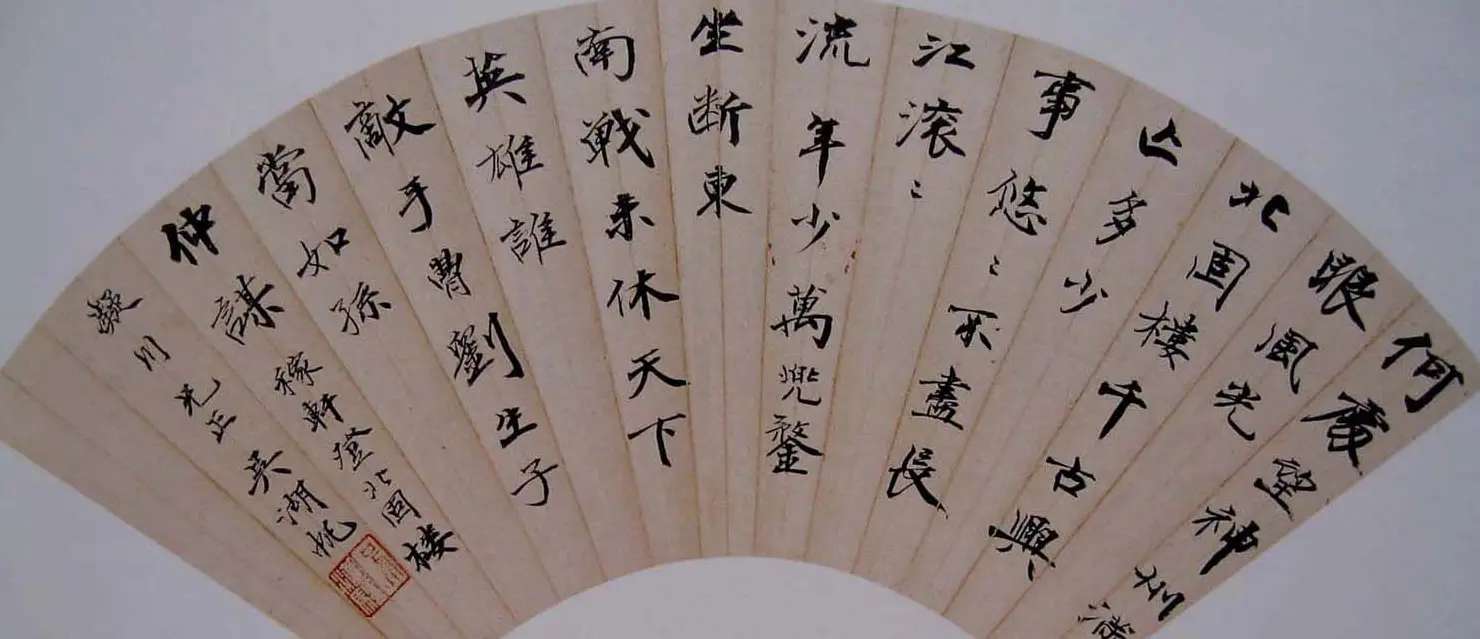 何處望神州滿
眼風光
北固樓千古興
亡多少
事悠〻不盡長
江滚〻
流年少萬兜鍪
坐斷東
南戰未休天下
英雄誰
敵手曹劉生子
當如孫
仲謀 稼軒登北固樓
川先正 吳湖帆